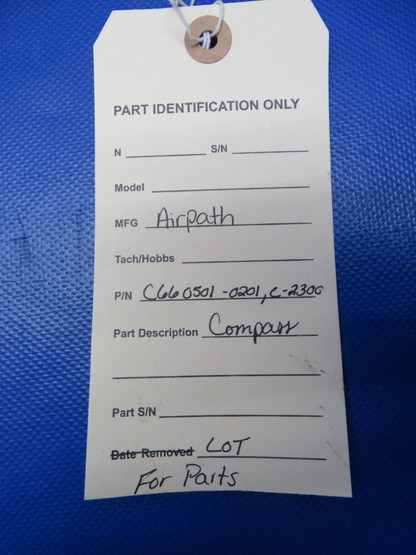 PART IDENTIFICATION ONLY
N ________ S/N ________
Model ________
MFG Airpath
Tach/Hobbs ________
P/N C660501-0201, C-2300
Part Description Compass
Part S/N ________
Date Removed LOT
For Parts